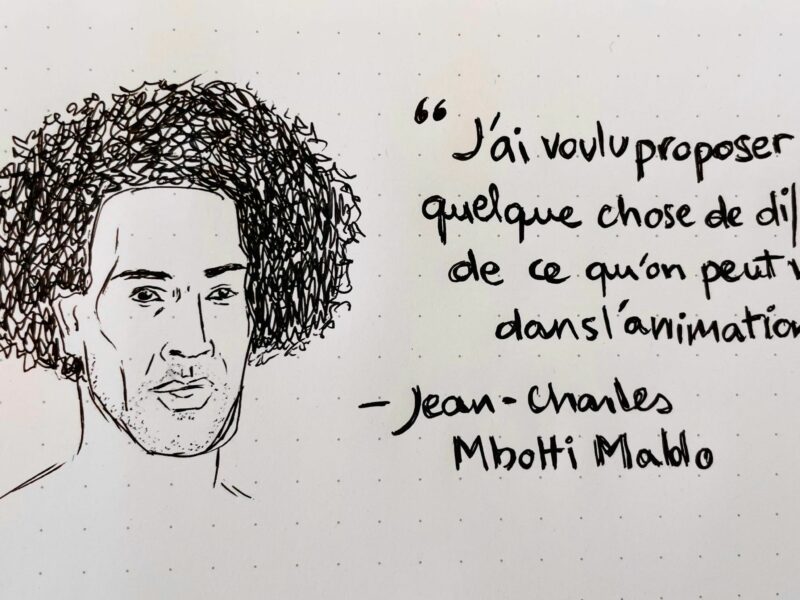 “ J'ai voulu proposer
quelque chose de di
de ce qu'on peut
dans l'animation
- Jean-Charles
Mbotti Malolo